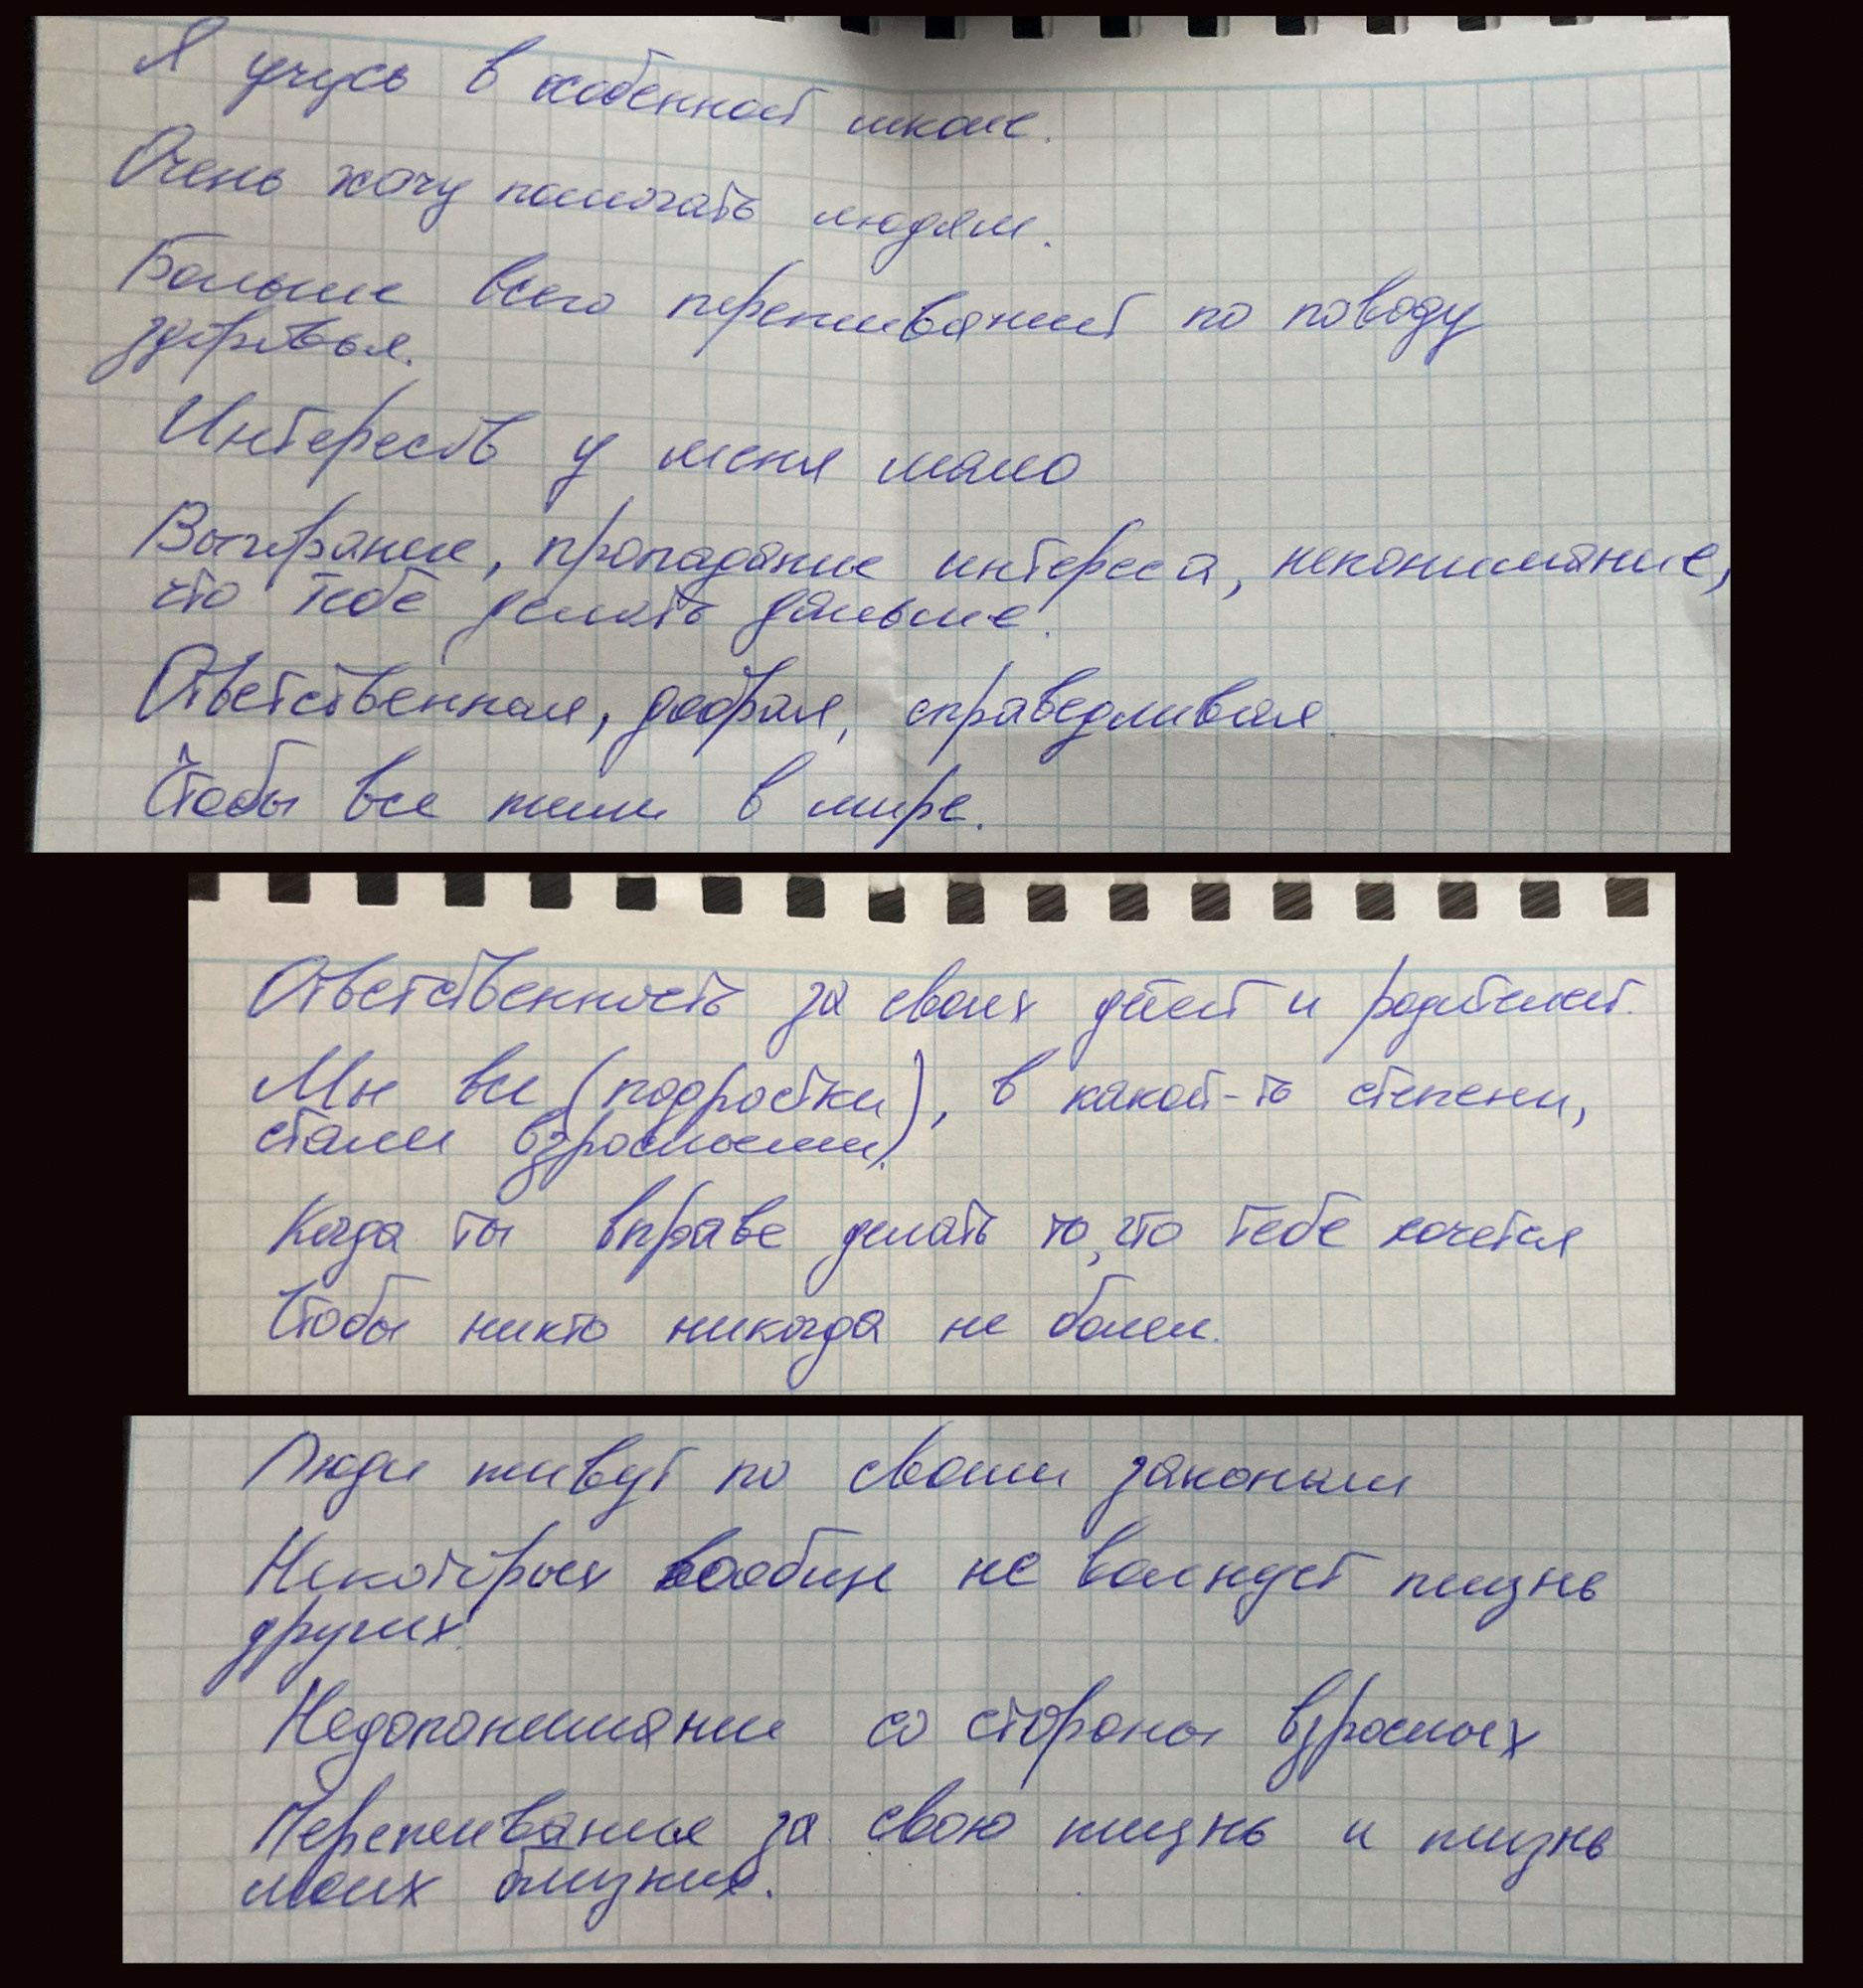 Я учусь в особенной школе.
Очень хочу помогать людям.
Больше всего переживаний по поводу
здоровья.
Интересов у меня мало
Выгорание, пропадание интереса, непонимание,
что тебе делать дальше.
Ответственная, добрая, справедливая.
Чтобы все жили в мире.
Ответственность за своих детей и родителей.
Мы все (подростки), в какой-то степени,
стали взрослыми).
Когда ты вправе делать то, что тебе хочется
Чтобы никто никогда не болел.
Люди живут по своим законам
Некоторых вообще не волнует жизнь
других.
Недопонимание со стороны взрослых
Переживания за свою жизнь и жизнь
моих близких.